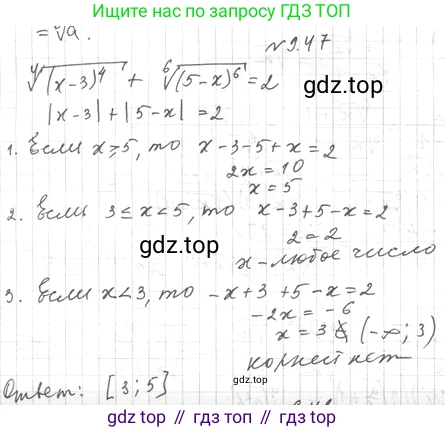 Найти ещё больше по запросу ГДЗ ТОП
= ⁿ√a .
N 9.47
⁴√(x-3)⁴ + ⁶√(5-x)⁶ = 2
гдз.top
|x-3| + |5-x| = 2
1. Если x ⩾ 5, то x-3-5+x = 2
2x = 10
x = 5
2. Если 3 ≤ x < 5, то x-3+5-x = 2
гдз.top
2 = 2
x - любое число
3. Если x < 3, то -x+3+5-x = 2
-2x = -6
гдз.top
x = 3 ∉ (-∞; 3)
корней нет
Ответ: [3; 5]
гдз.top // гдз.top // гдз.top